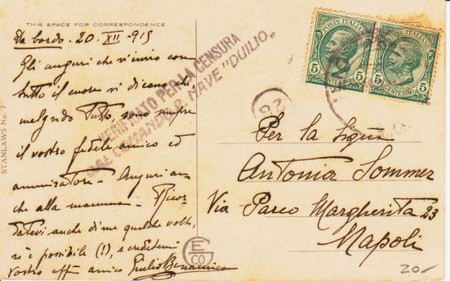 THIS SPACE FOR CORRESPONDENCE
Da bordo. 20. XII - 915
Gli auguri che vi invio con
tutto il cuore vi dicano che
malgrado tutto, sono sempre
il vostro fedele amico ed
ammiratore - Auguri an
che alla mamma - Ricor
datevi anche di me qualche volta,
se è possibile (!), e credetemi
vostro aff amico Giulio
STANLAWS No. 7
VERIFICATO PER LA CENSURA
DAL COMANDO R. NAVE "DUILIO"
POSTE ITALIANE
5 CENTESIMI 5
POSTE ITALIANE
5 CENTESIMI 5
Per la Sigra
Antonia Sommer
Via Parco Margherita 23
Napoli
E
CO
20-